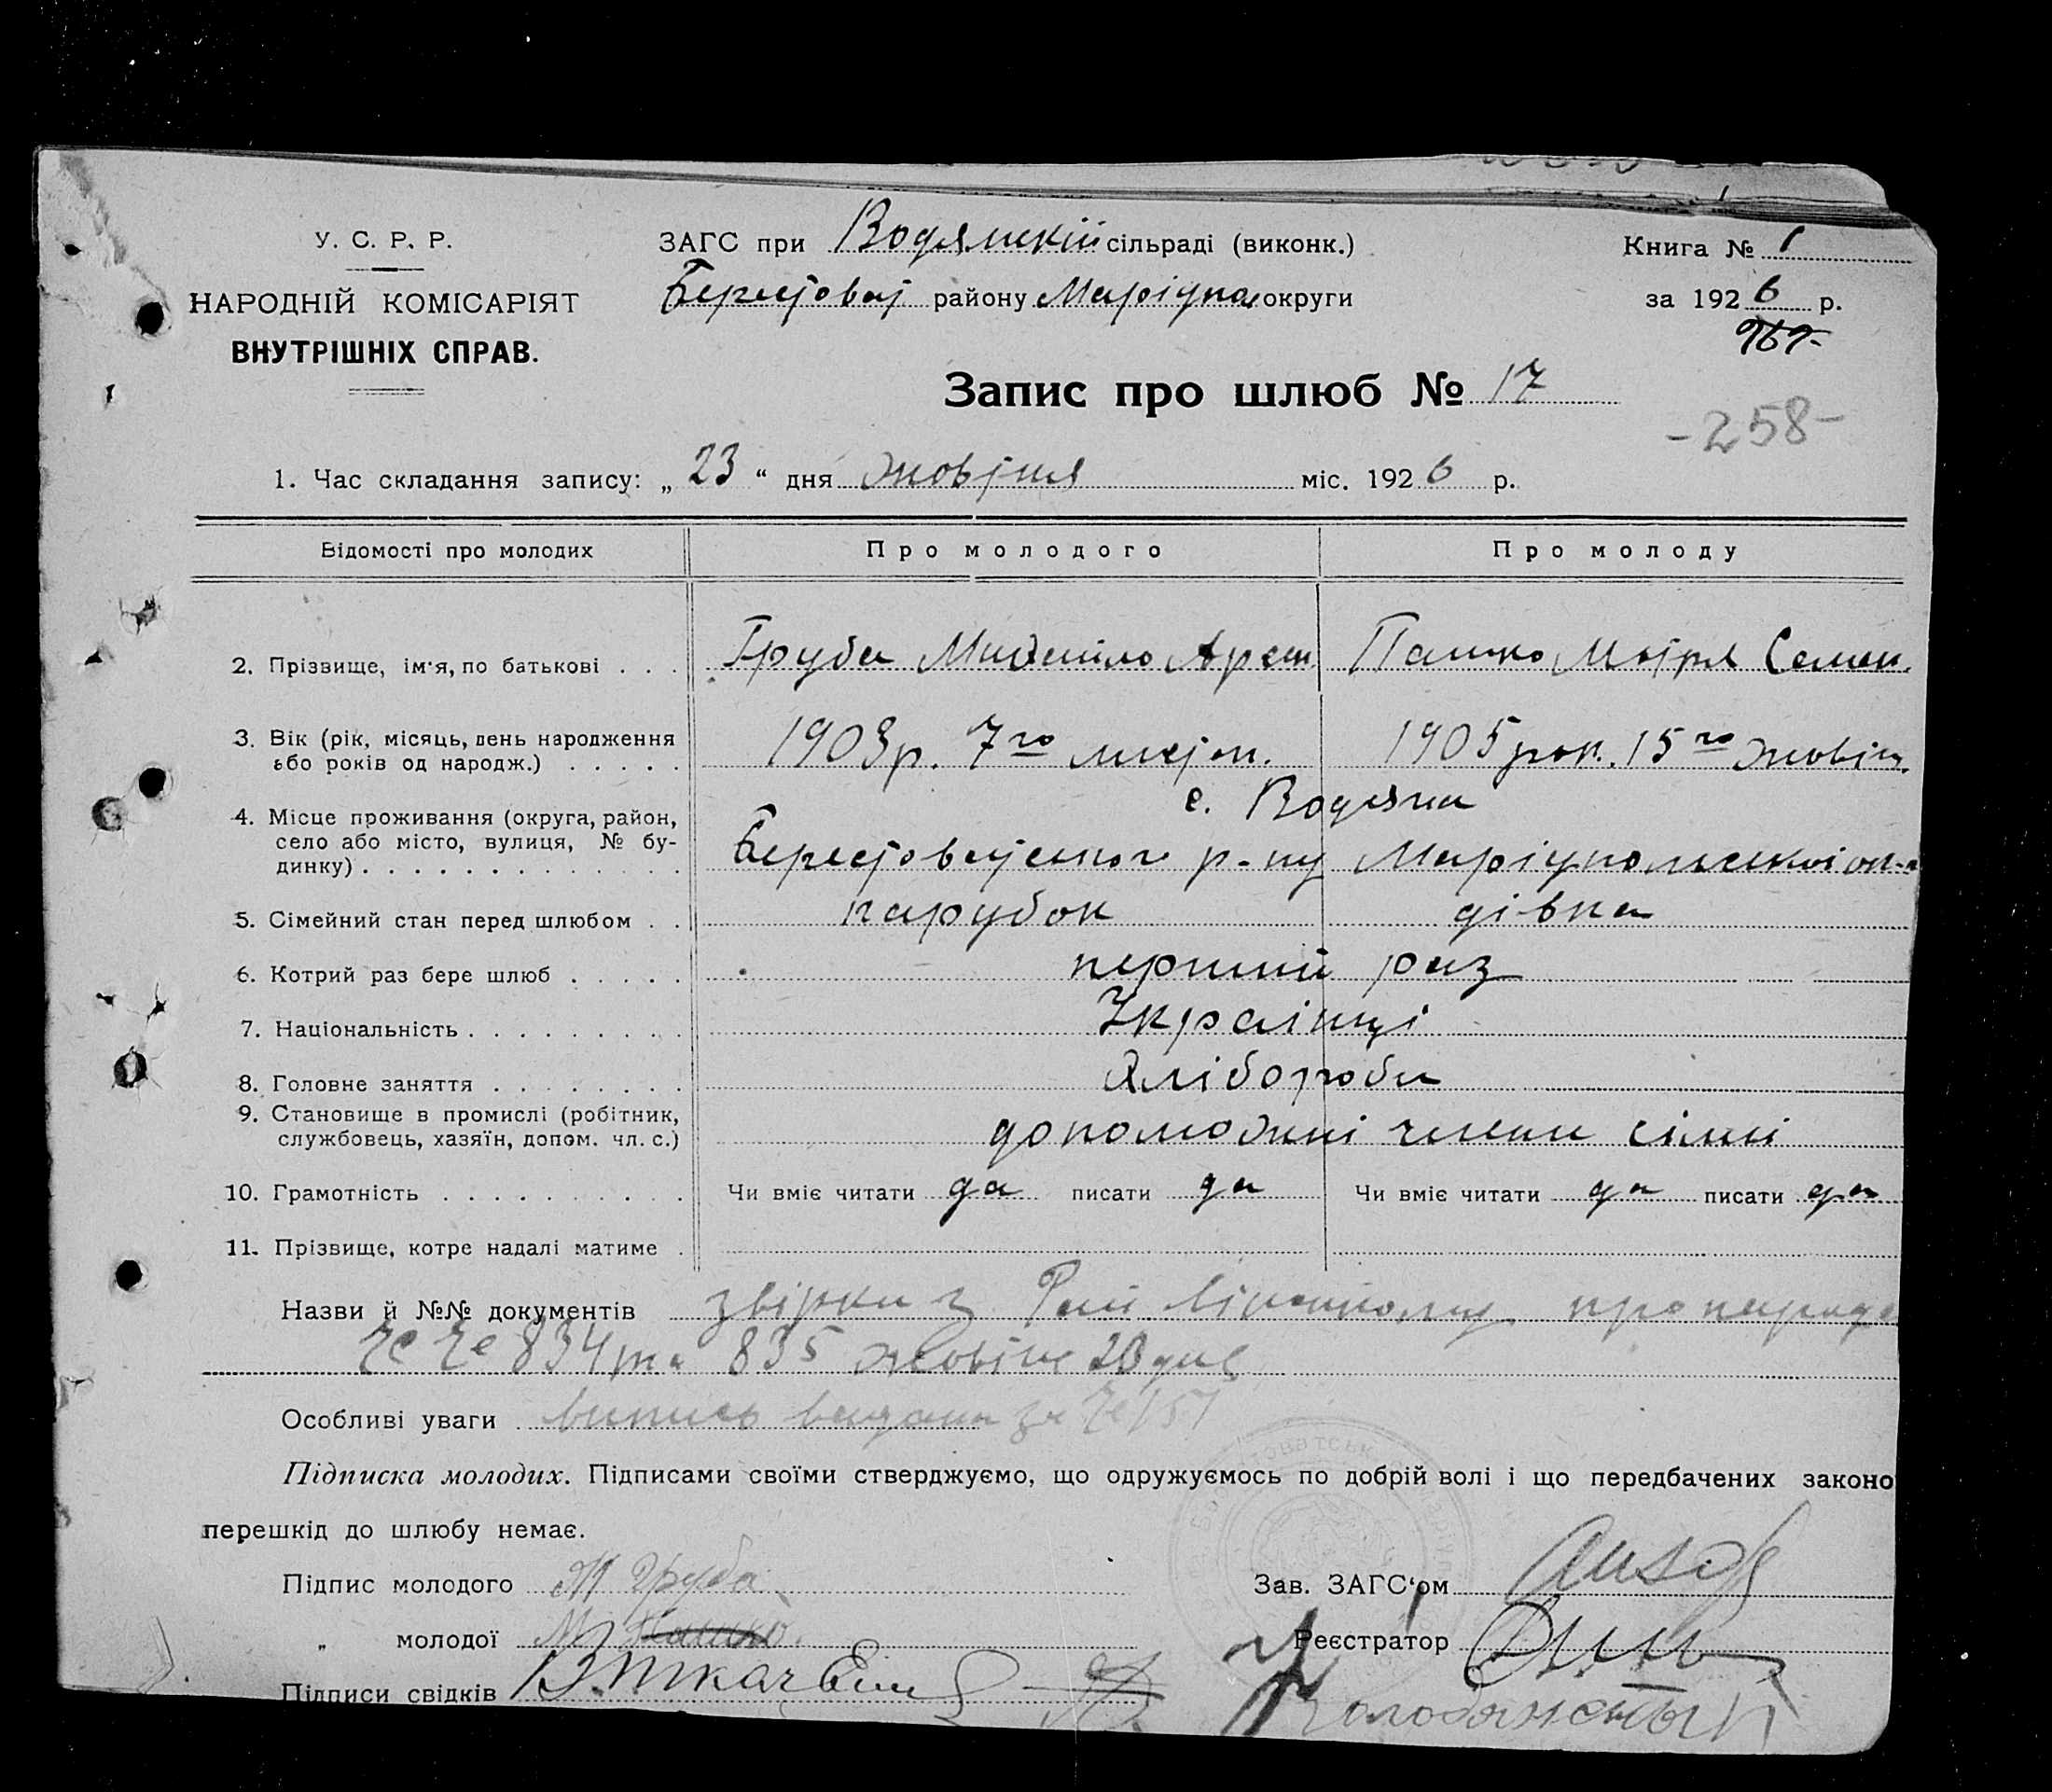 У. С. Р. Р.
НАРОДНІЙ КОМІСАРІЯТ
ВНУТРІШНІХ СПРАВ.
ЗАГС при Водянскій сільраді (виконк.)
Берестоват району Маріупол округи
Книга № 1
за 1926 р.
Запис про шлюб № 17
-258-
1. Час складання запису: „ 23 “ дня жовтня міс. 1926 р.
Відомості про молодих Про молодого Про молоду
2. Прізвище, ім'я, по батькові . . . Груба Михайло Арет. Пашко Мотря Семен.
3. Вік (рік, місяць, день народження або років од народж.) . . . . . 1903р. 7го листоп. 1905 рок. 15го жовтн.
4. Місце проживання (округа, район, село або місто, вулиця, № будинку) . . . . . . . . . . . . с. Водяна
Берестоватського р-ну Маріупольської ок-и
5. Сімейний стан перед шлюбом . . парубок дівка
6. Котрий раз бере шлюб . . . . . перший раз
7. Національність . . . . . . . . . Українці
8. Головне заняття . . . . . . . . Хлібороби
9. Становище в промислі (робітник, службовець, хазяїн, допом. чл. с.) допоможні члени сімї
10. Грамотність . . . . . . . . . . Чи вміє читати да писати да Чи вміє читати да писати да
11. Прізвище, котре надалі матиме .
Назви й №№ документів звірки з
№ № 834 та 835 жовтня 23 дня
Особливі уваги випись видана за № 151
Підписка молодих. Підписами своїми стверджуємо, що одружуємось по добрій волі і що передбачених законо
перешкід до шлюбу немає.
Підпис молодого М Груба
„ молодої М. Пашко.
Зав. ЗАГС'ом
Реєстратор
Підписи свідків В. Ткач